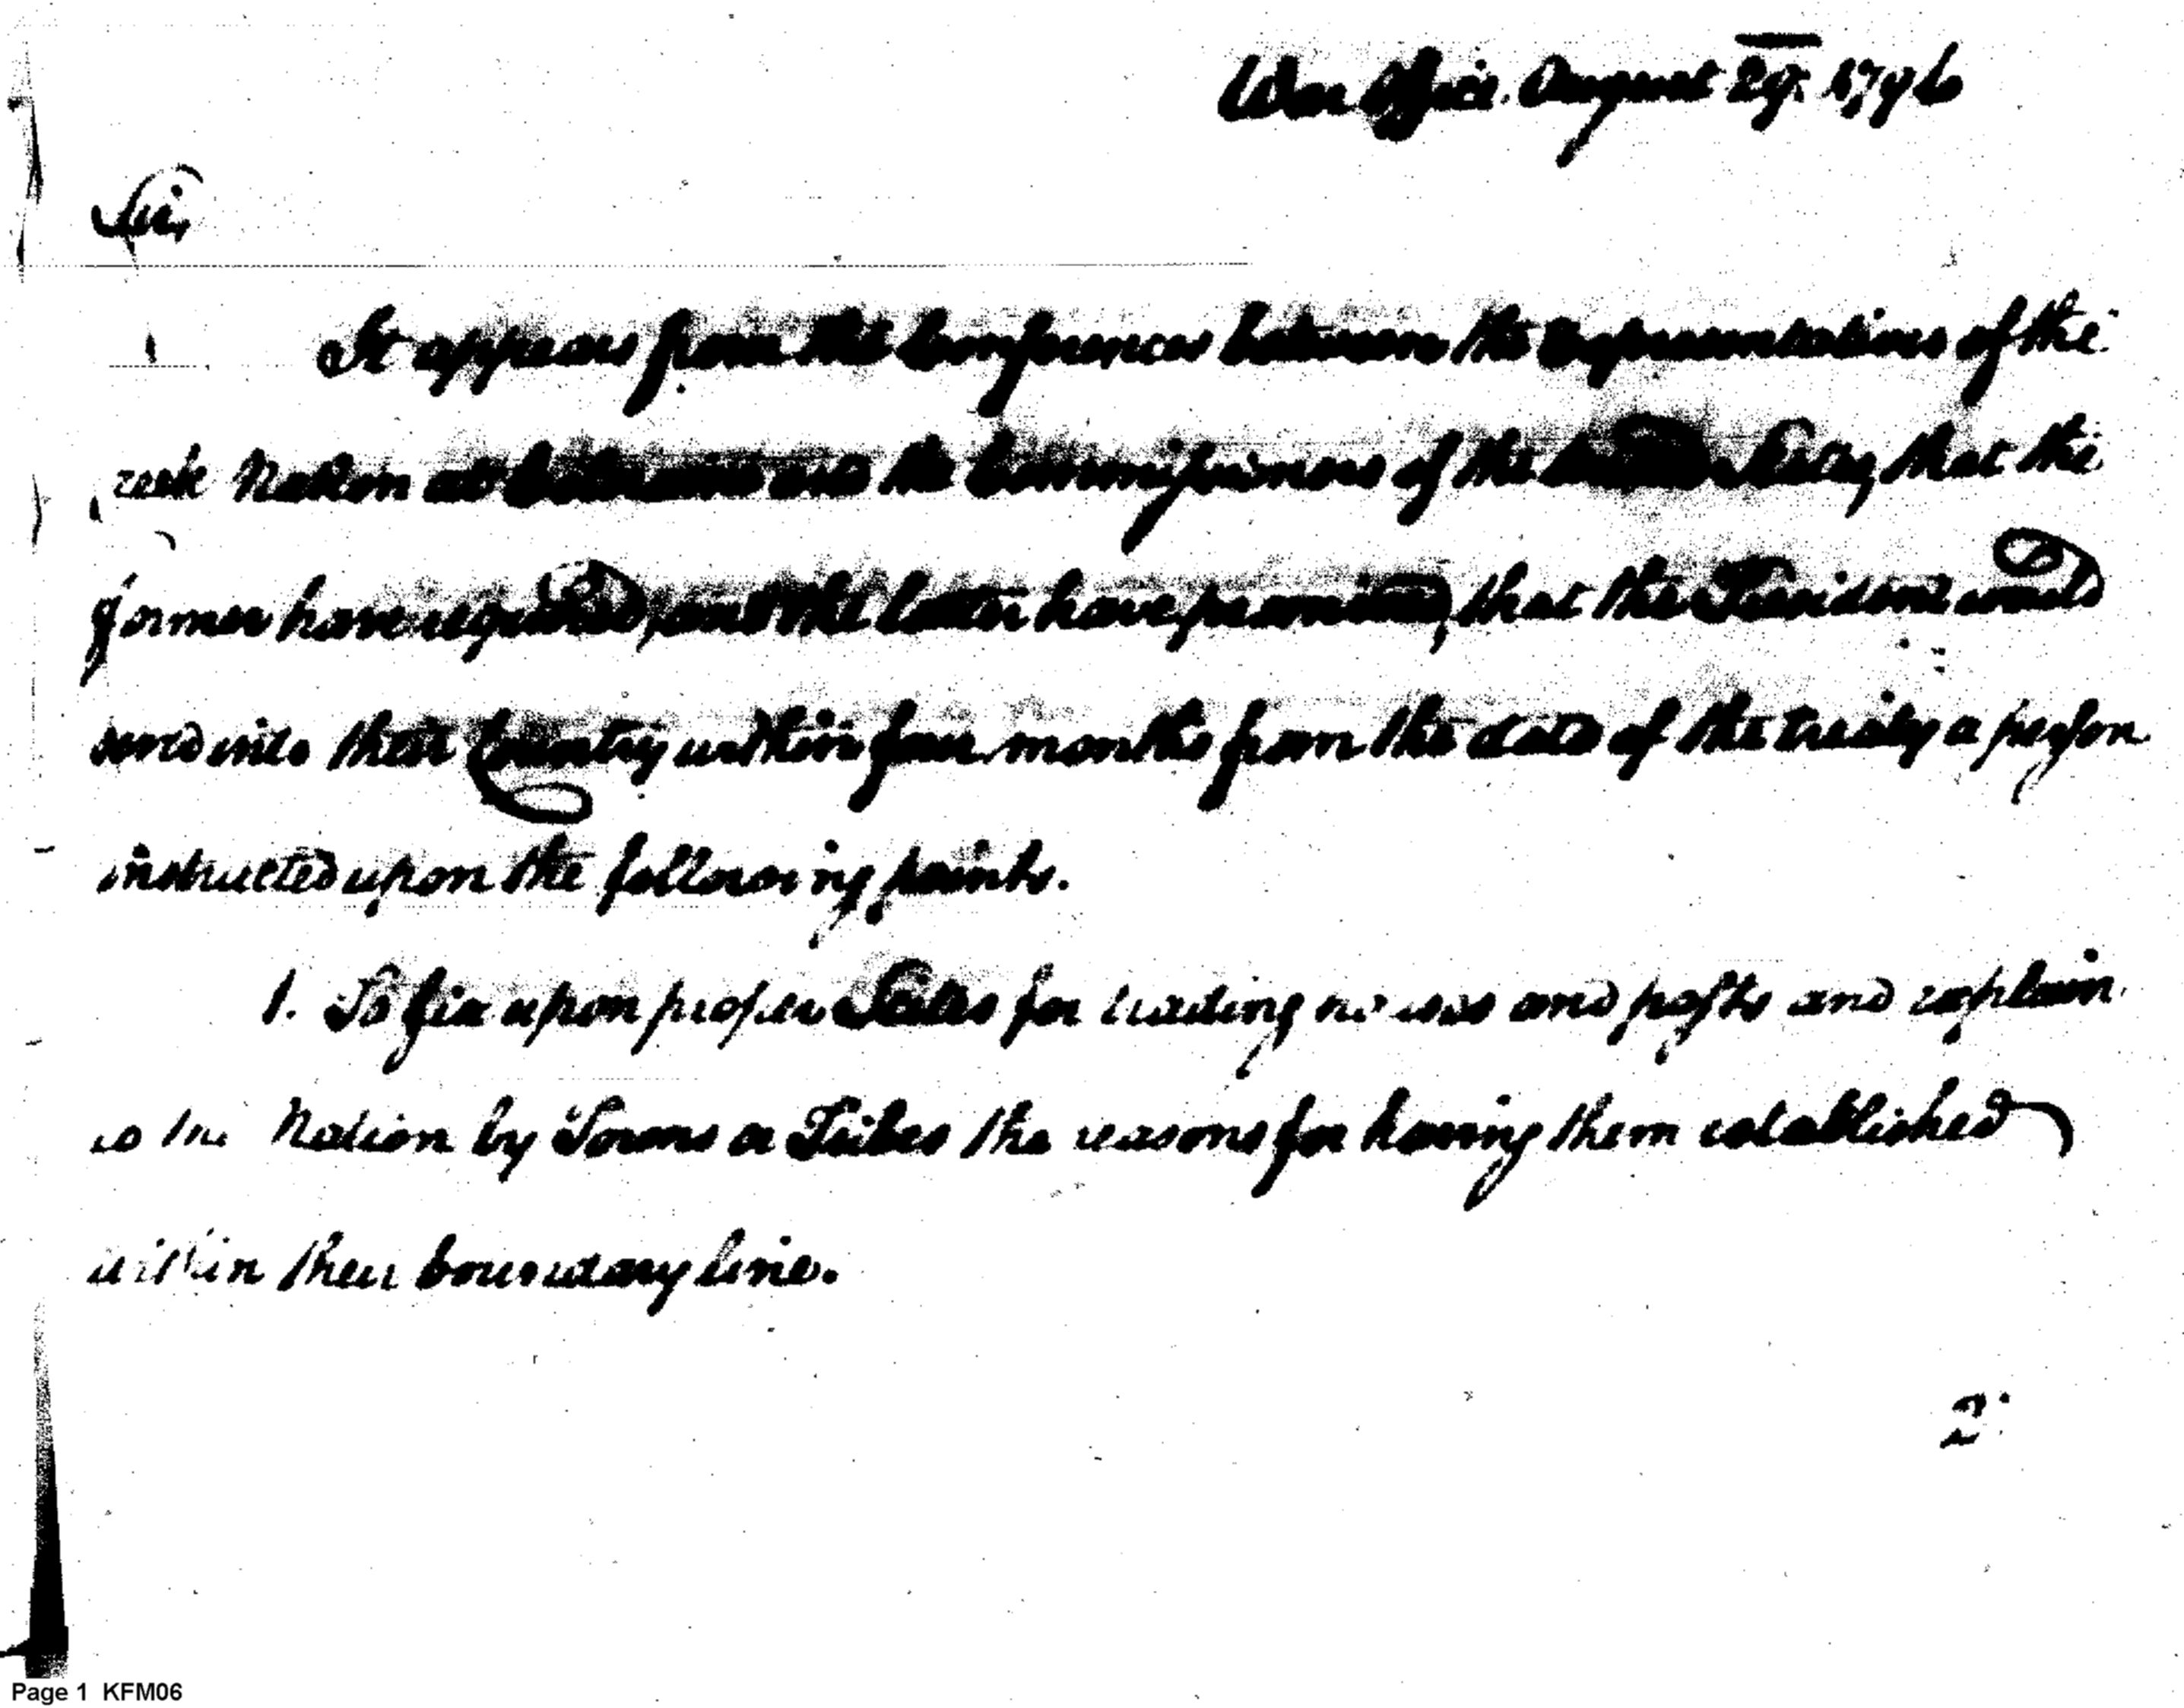 War Office. August 29. 1796
Sir,
It appears from the Conferences between the representatives of the
reek Nation at Coleraine and the Commissioners of the United States, that the
former have required, and the latter have promised, that the President would
send into their Country within four months from the date of the treaty a person
instructed upon the following points.
1. To fix upon proper Scites for trading houses and posts and explain
to the Nation by Towns or Tribes the reasons for having them established
within their boundary line.
2.
Page 1 KFM06